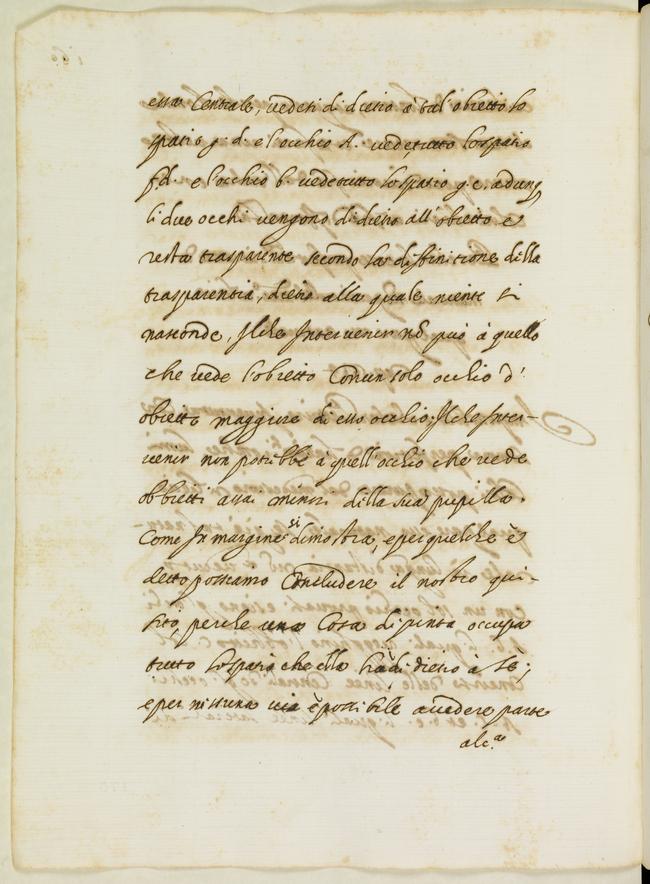 essa Centrale, vedesi di dietro à tal' obietto lo
spatio g. d. e l'occhio A. vede tutto lo spatio
f.d. e l'occhio b. vede tutto lo spatio g. e. adunq
li due occhi vengono di dietro all' obietto e
resta trasparente secondo la difinitione della
trasparentia, dietro alla quale niente si
nasconde, Il che Intervenir nō può à quello
che vede l'obietto Con un solo occhio d'
obietto maggiore di esso occhio; Il che Inter-
venir non potrebbe à quell'occhio che vede
obbietti assai minori della sua pupilla.
Come In margine si dimostra, e per quel che è
detto possiamo Concludere il nostro qui-
sito, perche una Cosa dipinta occupa
tutto lo spatio che ella hà di dietro à sè;
e per nissuna via è possibile a vedere parte
alc.ª